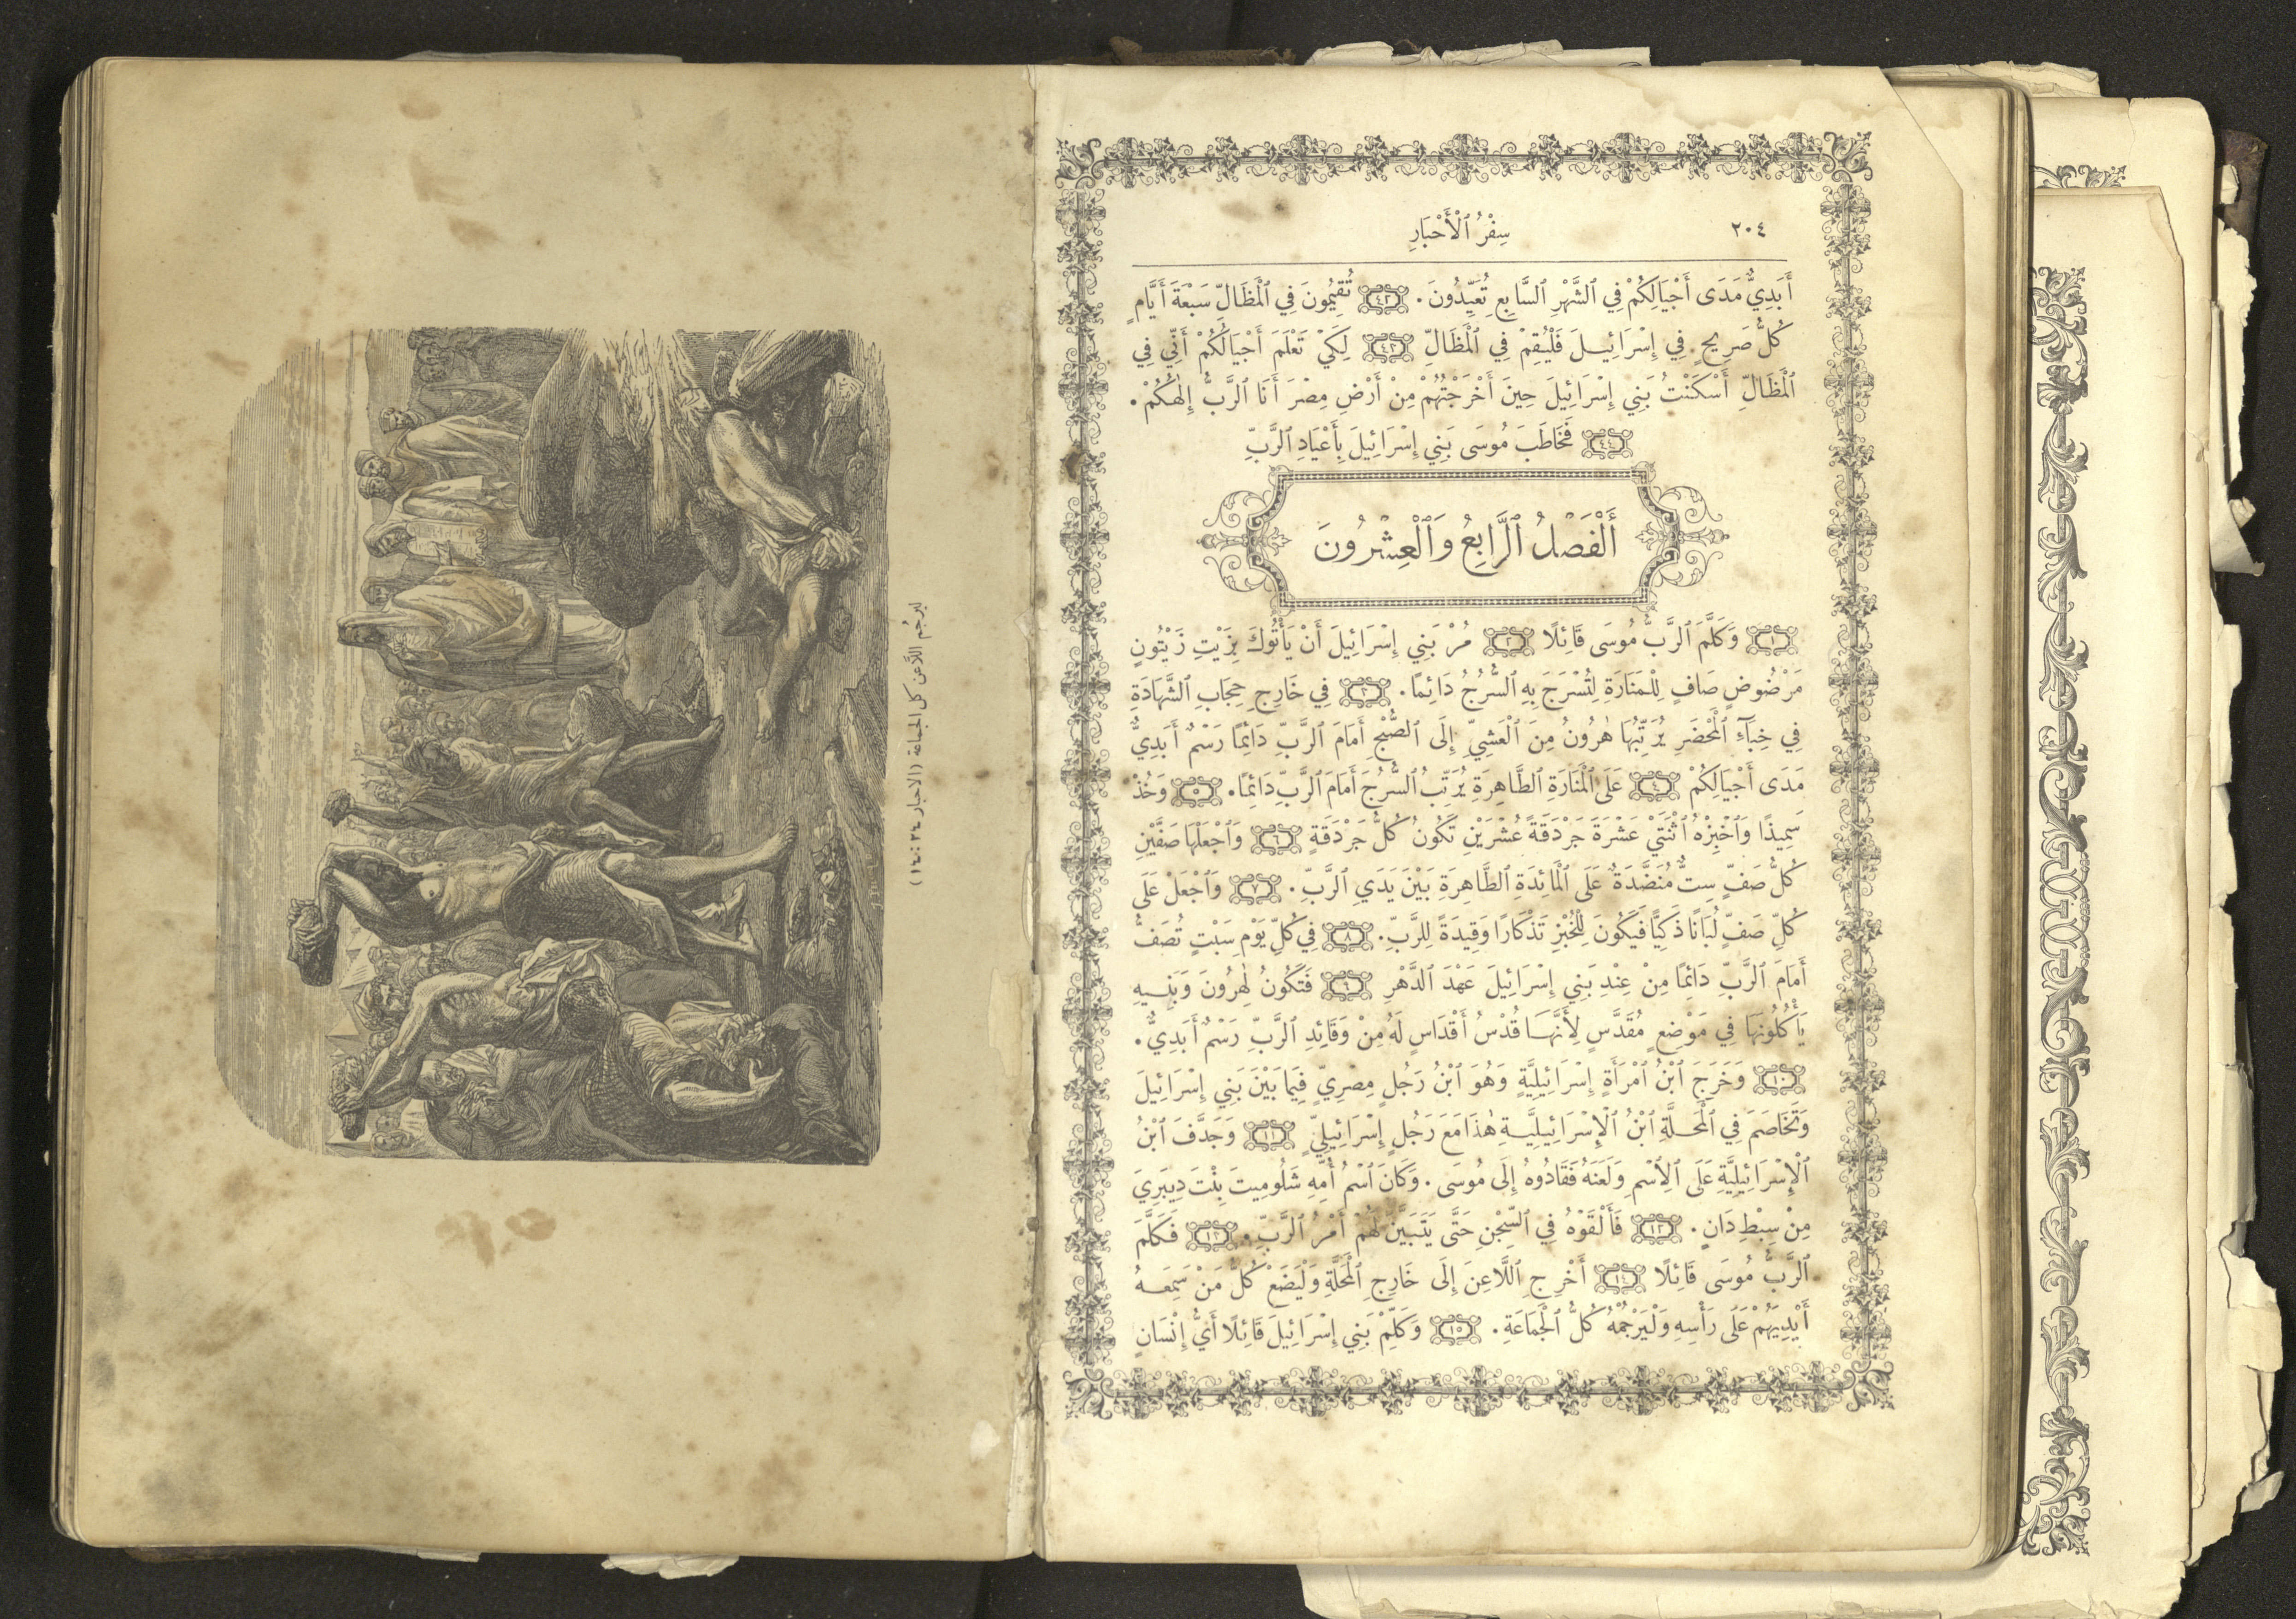 ٢٠٤
سِفْرُ ٱلْأَحْبَارِ
أَبَدِيٌّ مَدَى أَجْيَالِكُمْ فِي ٱلشَّهْرِ ٱلسَّابِعِ تُعَيِّدُونَ. ٤٢ تُقِيمُونَ فِي ٱلْمَظَالِّ سَبْعَةَ أَيَّامٍ
كُلُّ صَرِيحٍ فِي إِسْرَائِيلَ فَلْيُقِمْ فِي ٱلْمَظَالِّ ٤٣ لِكَيْ تَعْلَمَ أَجْيَالُكُمْ أَنِّي فِي
ٱلْمَظَالِّ أَسْكَنْتُ بَنِي إِسْرَائِيلَ حِينَ أَخْرَجْتُهُمْ مِنْ أَرْضِ مِصْرَ أَنَا ٱلرَّبُّ إِلٰهُكُمْ.
٤٤ فَخَاطَبَ مُوسَى بَنِي إِسْرَائِيلَ بِأَعْيَادِ ٱلرَّبِّ
أَلْفَصْلُ ٱلرَّابِعُ وَٱلْعِشْرُونَ
١ وَكَلَّمَ ٱلرَّبُّ مُوسَى قَائِلًا ٢ مُرْ بَنِي إِسْرَائِيلَ أَنْ يَأْتُوكَ بِزَيْتِ زَيْتُونٍ
مَرْضُوضٍ صَافٍ لِلْمَنَارَةِ لِتُسْرَجَ بِهِ ٱلسُّرُجُ دَائِمًا. ٣ فِي خَارِجِ حِجَابِ ٱلشَّهَادَةِ
فِي خِبَآءِ ٱلْمَحْضَرِ يُرَتِّبُهَا هٰرُونُ مِنَ ٱلْعَشِيِّ إِلَى ٱلصُّبْحِ أَمَامَ ٱلرَّبِّ دَائِمًا رَسْمٌ أَبَدِيٌّ
مَدَى أَجْيَالِكُمْ ٤ عَلَى ٱلْمَنَارَةِ ٱلطَّاهِرَةِ يُرَتِّبُ ٱلسُّرُجَ أَمَامَ ٱلرَّبِّ دَائِمًا. ٥ وَخُذْ
سَمِيذًا وَٱخْبِزْهُ ٱثْنَتَيْ عَشْرَةَ جَرْدَقَةً عُشْرَيْنِ تَكُونُ كُلُّ جَرْدَقَةٍ ٦ وَٱجْعَلْهَا صَفَّيْنِ
كُلُّ صَفٍّ سِتٌّ مُنَضَّدَةٌ عَلَى ٱلْمَائِدَةِ ٱلطَّاهِرَةِ بَيْنَ يَدَيِ ٱلرَّبِّ. ٧ وَٱجْعَلْ عَلَى
كُلِّ صَفٍّ لُبَانًا ذَكِيًّا فَيَكُونَ لِلْخُبْزِ تَذْكَارًا وَقِيدَةً لِلرَّبِّ. ٨ فِي كُلِّ يَوْمِ سَبْتٍ تُصَفُّ
أَمَامَ ٱلرَّبِّ دَائِمًا مِنْ عِنْدِ بَنِي إِسْرَائِيلَ عَهْدَ ٱلدَّهْرِ ٩ فَتَكُونُ لِهٰرُونَ وَبَنِيهِ
يَأْكُلُونَهَا فِي مَوْضِعٍ مُقَدَّسٍ لِأَنَّهَا قُدْسُ أَقْدَاسٍ لَهُ مِنْ وَقَائِدِ ٱلرَّبِّ رَسْمٌ أَبَدِيٌّ.
١٠ وَخَرَجَ ٱبْنُ ٱمْرَأَةٍ إِسْرَائِيلِيَّةٍ وَهُوَ ٱبْنُ رَجُلٍ مِصْرِيٍّ فِيمَا بَيْنَ بَنِي إِسْرَائِيلَ
وَتَخَاصَمَ فِي ٱلْمَحَلَّةِ ٱبْنُ ٱلْإِسْرَائِيلِيَّةِ هٰذَا مَعَ رَجُلٍ إِسْرَائِيلِيٍّ ١١ وَجَدَّفَ ٱبْنُ
ٱلْإِسْرَائِيلِيَّةِ عَلَى ٱلِٱسْمِ وَلَعَنَهُ فَقَادُوهُ إِلَى مُوسَى. وَكَانَ ٱسْمُ أُمِّهِ شَلُومِيتَ بِنْتَ دِيبَرِيَ
مِنْ سِبْطِ دَانٍ. ١٢ فَأَلْقَوْهُ فِي ٱلسِّجْنِ حَتَّى يَتَبَيَّنَ لَهُمْ أَمْرُ ٱلرَّبِّ. ١٣ فَكَلَّمَ
ٱلرَّبُّ مُوسَى قَائِلًا ١٤ أَخْرِجِ ٱللَّاعِنَ إِلَى خَارِجِ ٱلْمَحَلَّةِ وَلْيَضَعْ كُلُّ مَنْ سَمِعَهُ
أَيْدِيَهُمْ عَلَى رَأْسِهِ وَلْيَرْجُمْهُ كُلُّ ٱلْجَمَاعَةِ. ١٥ وَكَلِّمْ بَنِي إِسْرَائِيلَ قَائِلًا أَيُّ إِنْسَانٍ
ليرجُم اللّاعن كل الجماعة (الاحبار ٢٤:١٤)